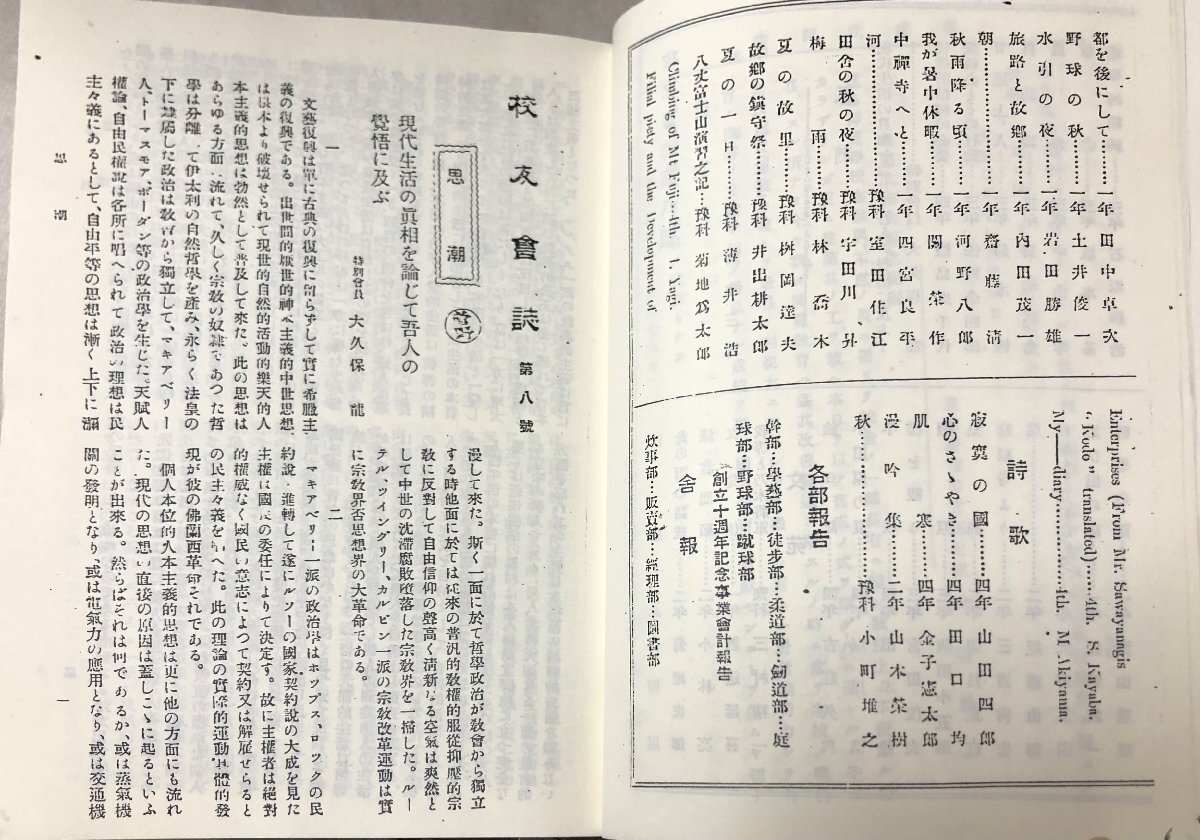 都を後にして………一年 田中卓次
野球の秋………一年 土井俊一
水引の夜………一年 岩田勝雄
旅路と故郷………一年 內田茂一
朝………一年 齋藤淸
秋雨降る頃………一年 河野八郎
我が暑中休暇………一年 關榮作
中禪寺へと………一年 四宮良平
河………豫科 室田住江
田舍の秋の夜………豫科 宇田川舁
梅雨………豫科 林喬木
夏の故里………豫科 桝岡達夫
故鄕の鎭守祭………豫科 井出耕太郎
夏の一日………豫科 薄井浩
八丈富士山演習之記…豫科 菊地爲太郎
Climbing of Mt. Fuji…4th. I. Yagi.
Filial piety and the Development of
Enterprises (From Mr. Sawayanagis
"Kodo" translated)……4th. S. Kayaba.
My——diary…………4th. M Akiyama.
詩歌
寂寞の國………四年 山田四郎
心のさゝやき………四年 田口均
肌寒………四年 金子憲太郎
漫吟集………二年 山本榮樹
秋………豫科 小町堆之
各部報告
幹部…學藝部…徒步部…柔道部…劍道部…庭
球部…野球部…蹴球部
創立十週年記念事業會計報告
舍報
炊事部…販賣部…經理部…圖書部
校友會誌 第八號
思潮
現代生活の眞相を論じて吾人の
覺悟に及ぶ
特別會員 大久保龍
一
文藝復興は單に古典の復興に留らずして實に希臘主
義の復興である。出世間的厭世的神本主義的中世思想
は根本より破壞せられて現世的自然的活動的樂天的人
本主義的思想は勃然として普及して來た。此の思想は
あらゆる方面に流れて久しく宗敎の奴隷であつた哲
學は分離して伊太利の自然哲學を產み、永らく法皇の
下に隷屬した政治は敎會から獨立して、マキアベリー
人、トーマスモア、ボーダン等の政治學を生じた。天賦人
權論、自由民權說は各所に唱へられて政治の理想は民
主々義にあるとして、自由平等の思想は漸く上下に瀰
漫して來た。斯く一面に於て哲學政治が敎會から獨立
する時他面に於ては從來の普汎的敎權的服從抑壓的宗
敎に反對して自由信仰の聲高く淸新なる空氣は爽然と
して中世の沈滯腐敗墮落した宗敎界を一掃した。ルー
テル、ツイングリー、カルビン一派の宗敎改革運動は實
に宗敎界否思想界の大革命である。
二
マキアベリー一派の政治學はホッブス、ロックの民
約說に進轉して遂にルソーの國家契約說の大成を見た
主權は國民の委任によりて決定す。故に主權者は絕對
的權威なく國民の意志によつて契約又は解雇せらると
の民主々義を
此の理論の實際的運動具體的發
現が彼の佛蘭西革命それである。
個人本位的人本主義的思想は更に他の方面にも流れ
た。現代の思想の直後の原因は蓋しこゝに起るといふ
ことが出來る。然らばそれは何であるか、或は蒸氣機
關の發明となり、或は電氣力の應用となり、或は交通機
思潮
一